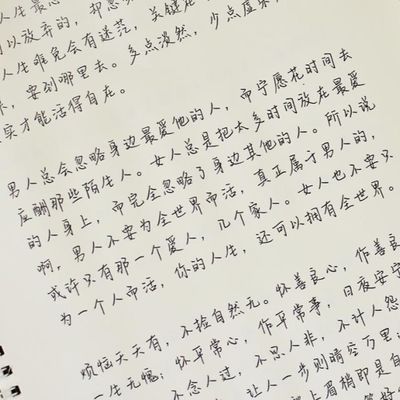 人生最
可以放弃的，却
人生难免会有迷茫，关键
来，要到哪里去。多点淡然，少点虚
实才能活得自在。
男人总会忽略身边最爱他的人，而宁愿花时间去
应酬那些陌生人。女人总是把太多时间放在最爱
的人身上，而完全忽略了身边其他的人。所以说
啊，男人不要为全世界而活，真正属于男人的，
或许只有那一个爱人，几个家人。女人也不要只
为一个人而活，你的人生，还可以拥有全世界。
烦恼天天有，不捡自然无。怀善良心，作善良
一生无愧；怀平常心，作平常事，日夜安宁
不念人过，不思人非，不计人怨
让人一步则晴空万里
上眉梢即是自